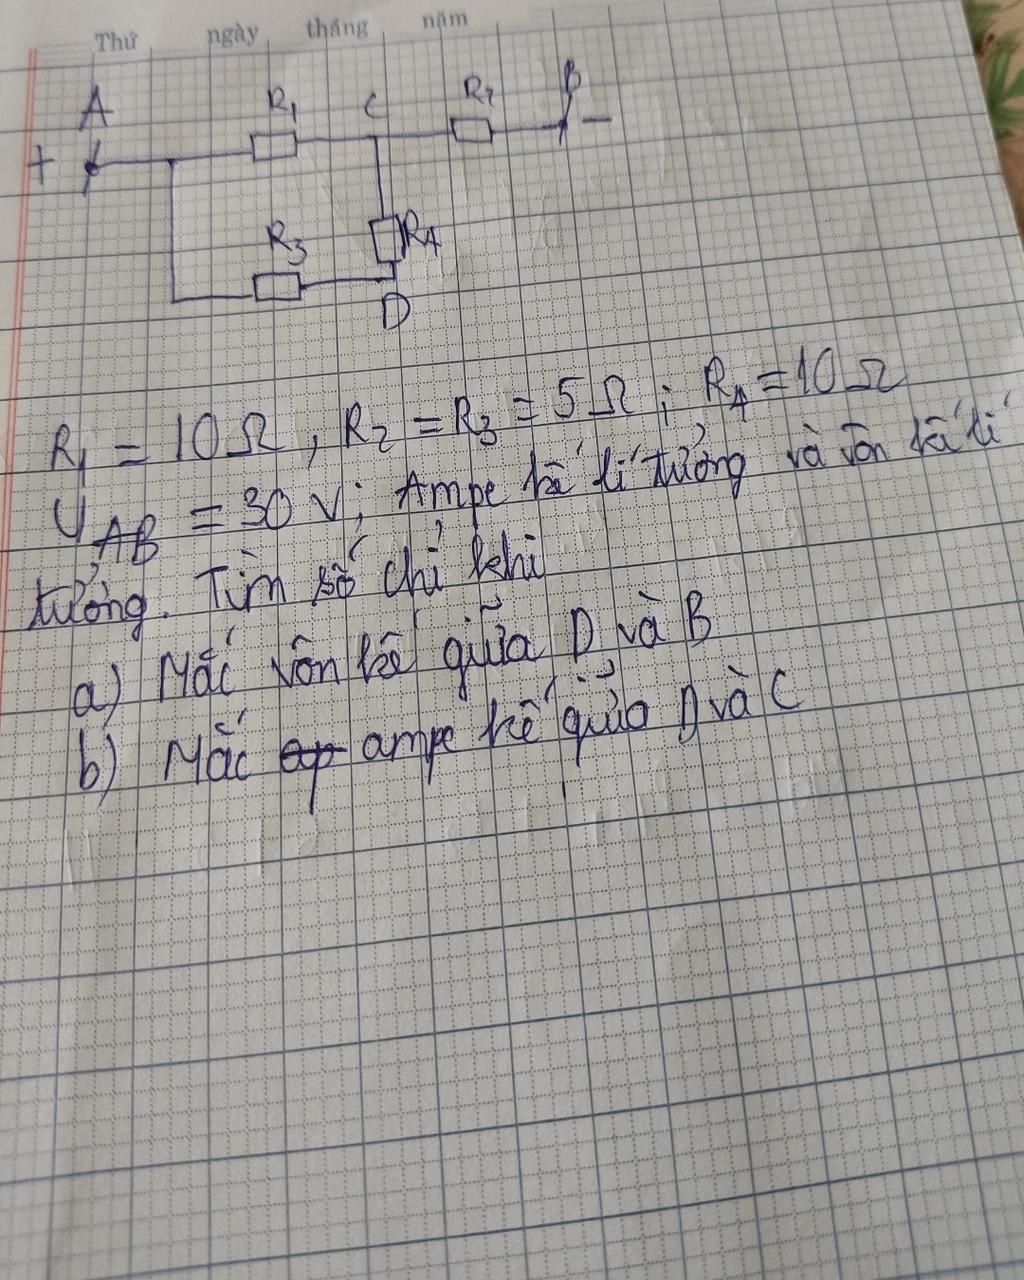 Thứ ngày tháng năm
A R1 C R2 B
+ -
R3 R4
D
R1 = 10 Ω, R2 = R3 = 5 Ω; R4 = 10 Ω
UAB = 30 V; Ampe kế lí tưởng và vôn kế lí
tưởng. Tìm số chỉ khi
a) Mắc vôn kế giữa D và B
b) Mắc ampe kế giữa D và C